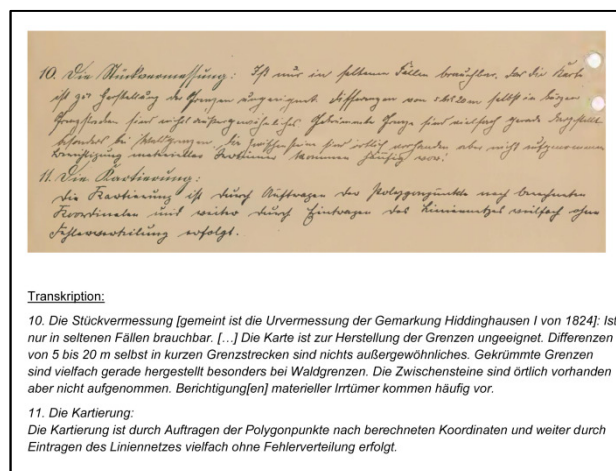 10. Die Stückvermessung: Ist nur in seltenen Fällen brauchbar. die Karte
ist zur Herstellung der Grenzen ungeeignet. Differenzen von 5 bis 20 m selbst in kurzen
Grenzstrecken sind nichts außergewöhnliches. Gekrümmte Grenzen sind vielfach gerade dargestellt
besonders bei Waldgrenzen. Die Zwischensteine sind örtlich vorhanden aber nicht aufgenommen
Berichtigung materieller Irrtümer kommen häufig vor.
11. Die Kartierung:
Die Kartierung ist durch Auftragen der Polygonpunkte nach berechneten
Koordinaten und weiter durch Eintragen des Liniennetzes vielfach ohne
Fehlerverteilung erfolgt.
Transkription:
10. Die Stückvermessung [gemeint ist die Urvermessung der Gemarkung Hiddinghausen I von 1824]: Ist
nur in seltenen Fällen brauchbar. […] Die Karte ist zur Herstellung der Grenzen ungeeignet. Differenzen
von 5 bis 20 m selbst in kurzen Grenzstrecken sind nichts außergewöhnliches. Gekrümmte Grenzen
sind vielfach gerade hergestellt besonders bei Waldgrenzen. Die Zwischensteine sind örtlich vorhanden
aber nicht aufgenommen. Berichtigung[en] materieller Irrtümer kommen häufig vor.
11. Die Kartierung:
Die Kartierung ist durch Auftragen der Polygonpunkte nach berechneten Koordinaten und weiter durch
Eintragen des Liniennetzes vielfach ohne Fehlerverteilung erfolgt.